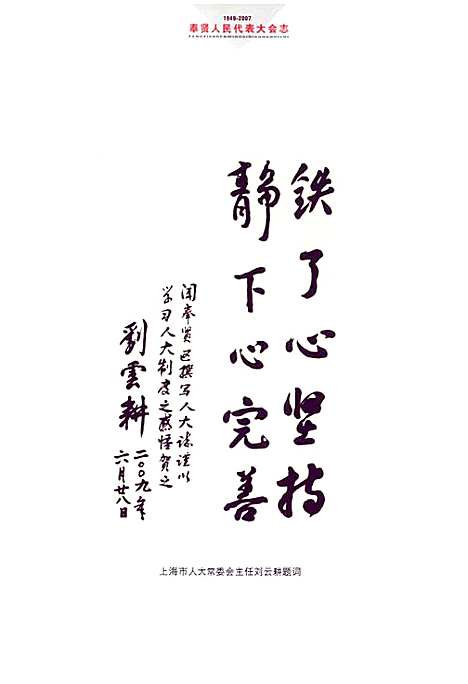 1949-2007
奉贤人民代表大会志
铁了心坚持
静下心完善
闻奉贤区撰写人大志谨以
学习人大制度之感悟贺之
劉雲耕
二〇〇九年
六月廿八日
上海市人大常委会主任刘云耕题词